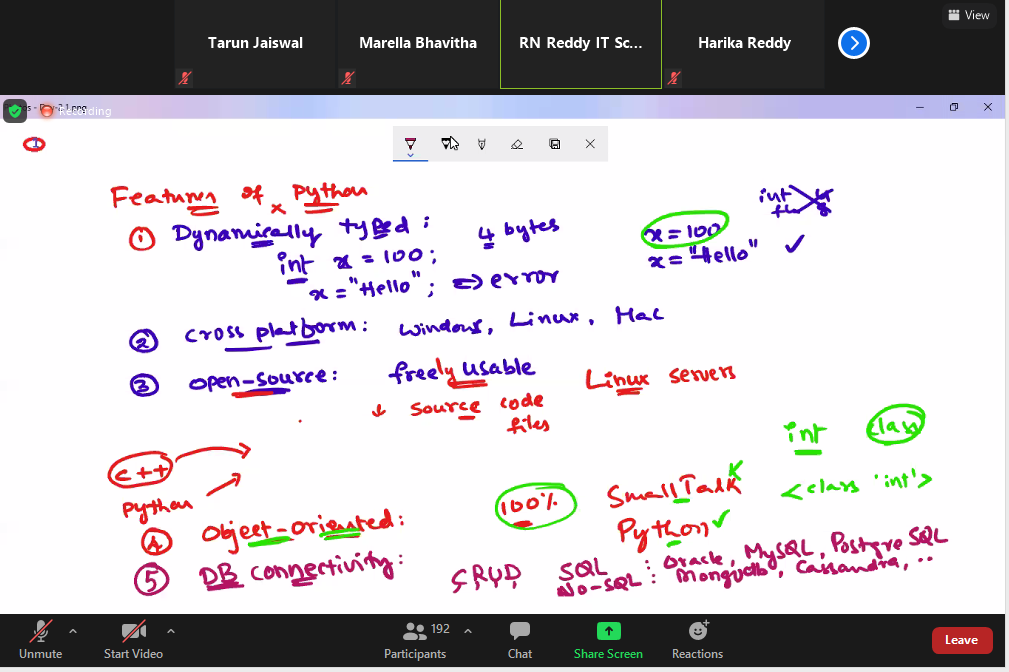 View
Tarun Jaiswal
Marella Bhavitha
RN Reddy IT Sc...
Harika Reddy
Recording
1
Features of Python
1 Dynamically typed : 4 bytes
int x = 100 ;
x = "Hello" ; => error
x = 100
x = "Hello" ✓
int
2 cross platform : windows, Linux, Mac
3 open-source : freely usable Linux servers
↓ source code
files
int class
<class 'int'>
C++
python
100% SmallTalk
Python ✓
4 object-oriented :
5 DB connectivity : CRUD
SQL : Oracle, MySQL, PostgreSQL
No-SQL : Mongodb, Cassandra, ..
Unmute
Start Video
192
Participants
Chat
Share Screen
Reactions
Leave